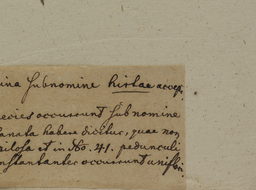 ina sub nomine hirtae accepi.
ecies occurrunt sub nomine
lanata habere dicitur, quae non
pilosa et in No. 41. pedunculi
nstantanter occurrunt uniflori